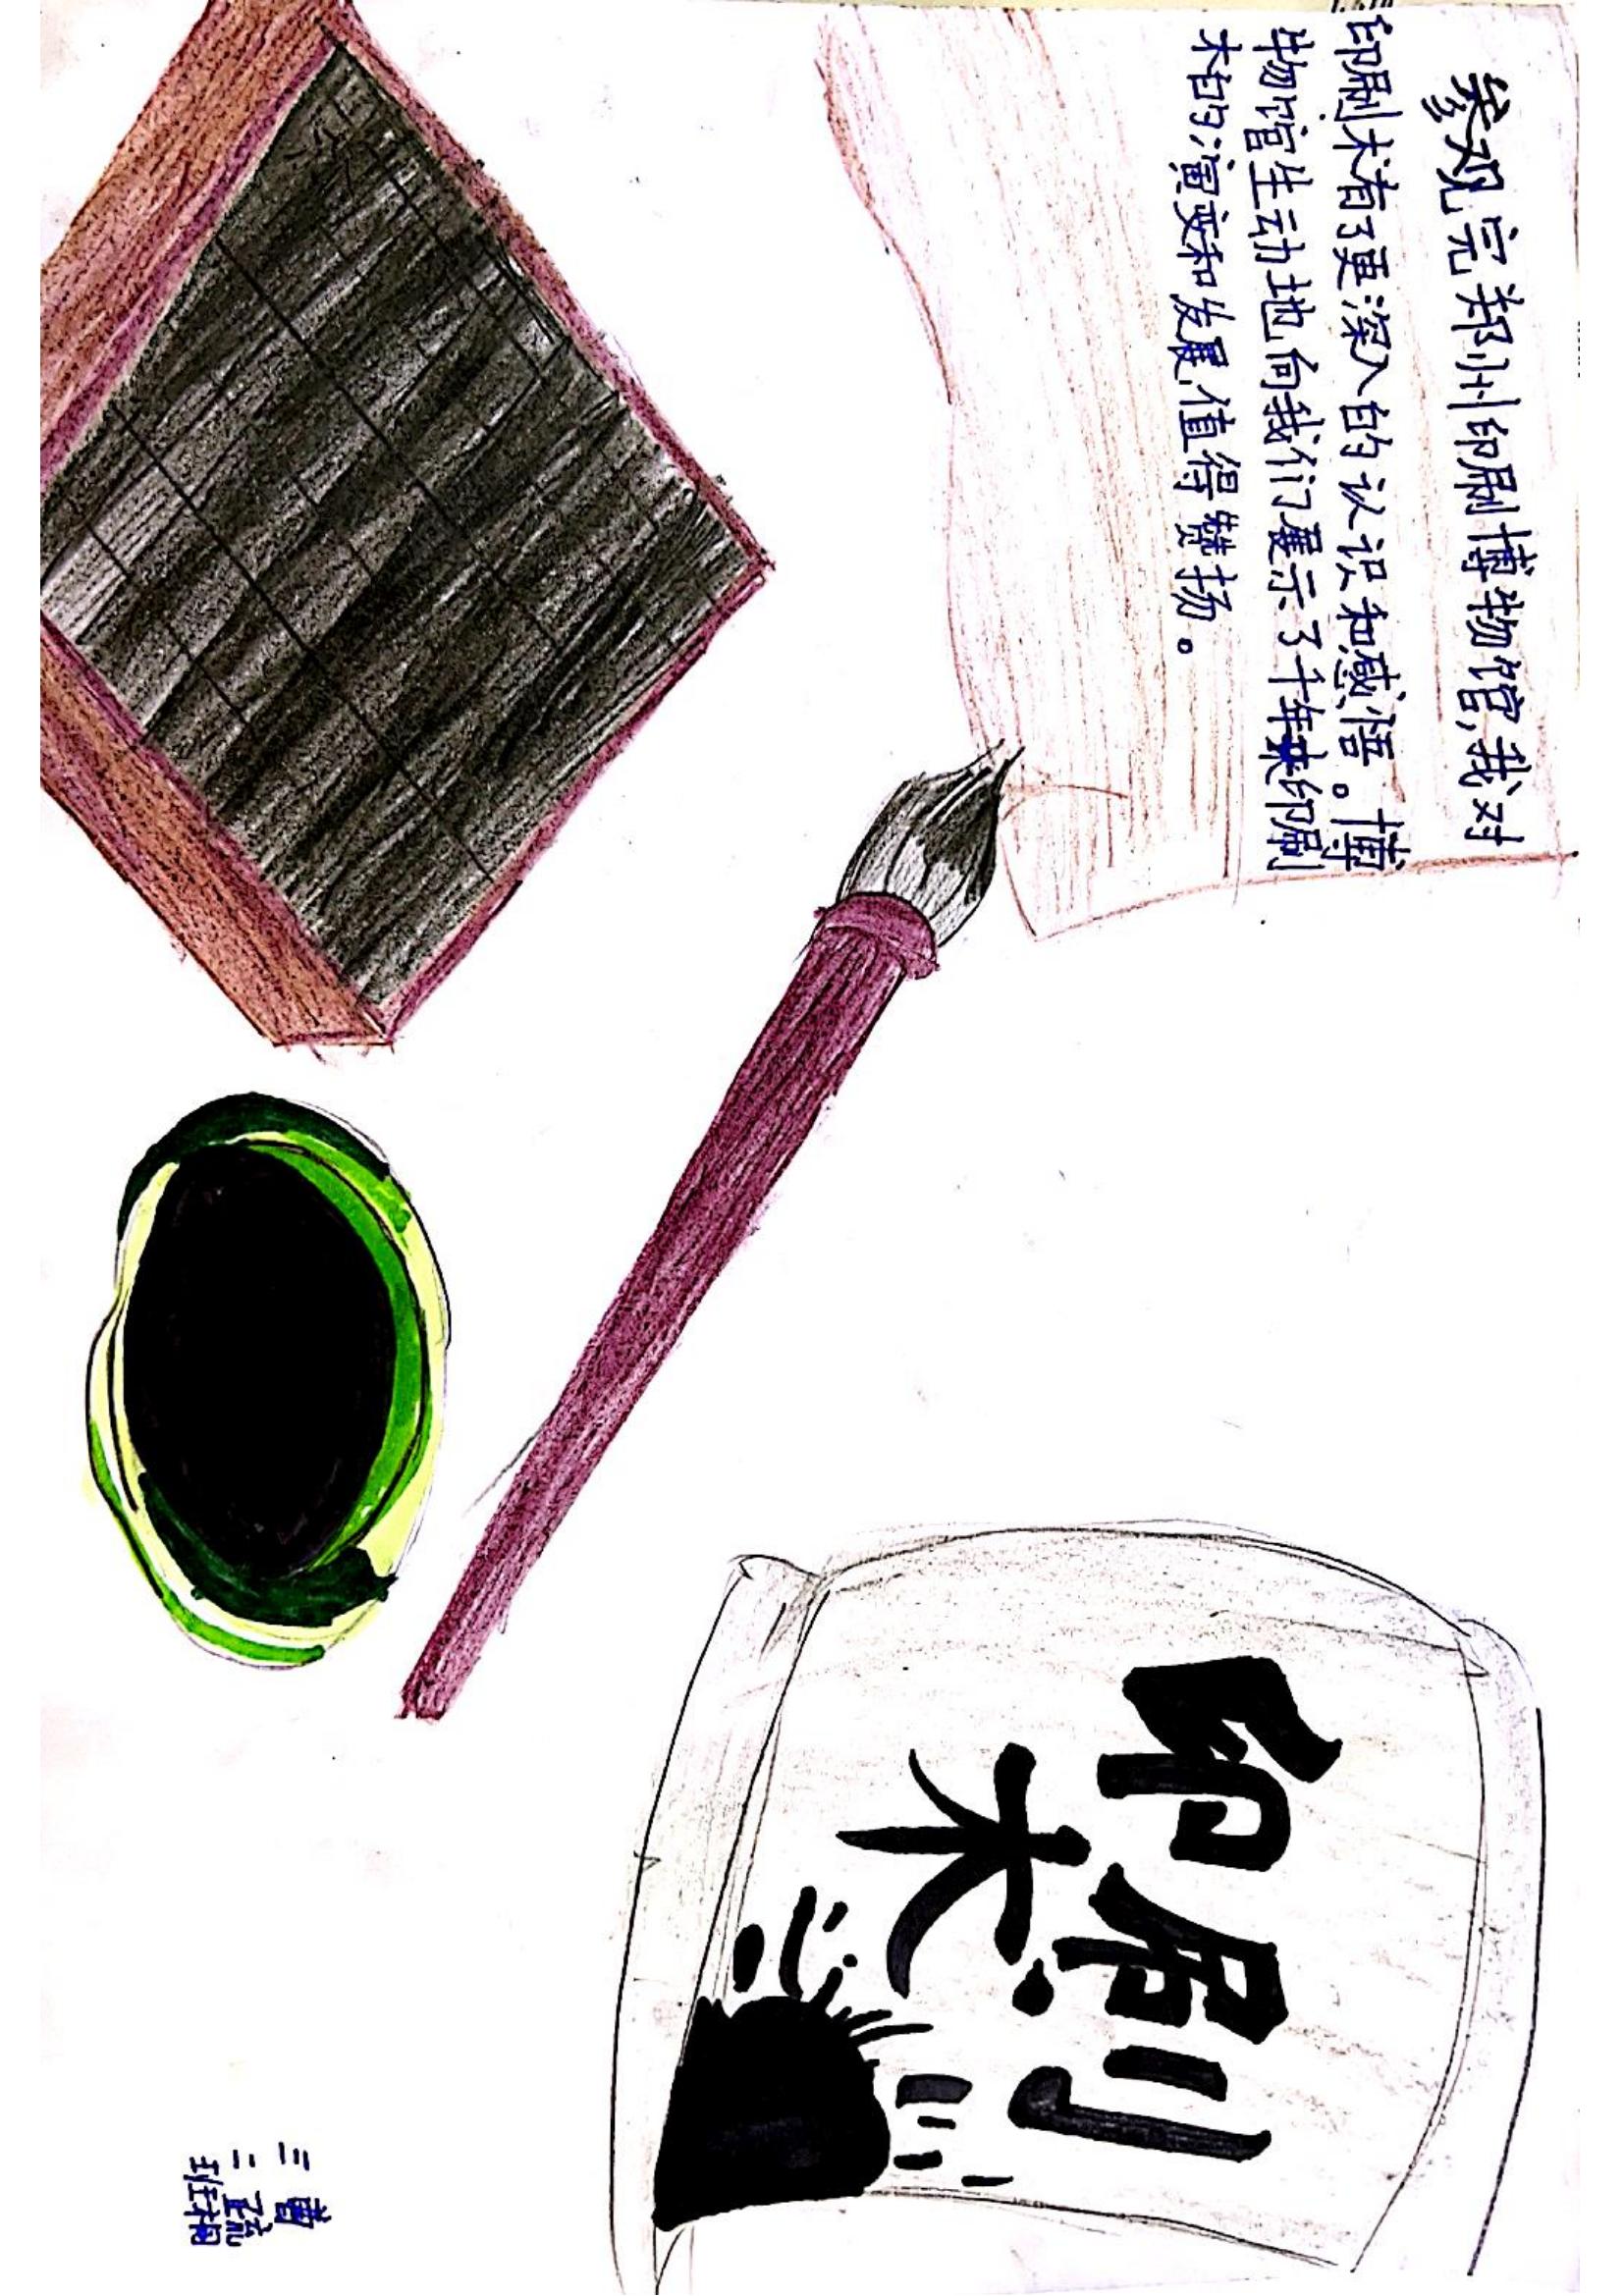 参观完郑州印刷博物馆,我对
印刷术有了更深入的认识和感悟。博
物馆生动地向我们展示了千年来印刷
术的演变和发展,值得赞扬。
印刷
术
三二班